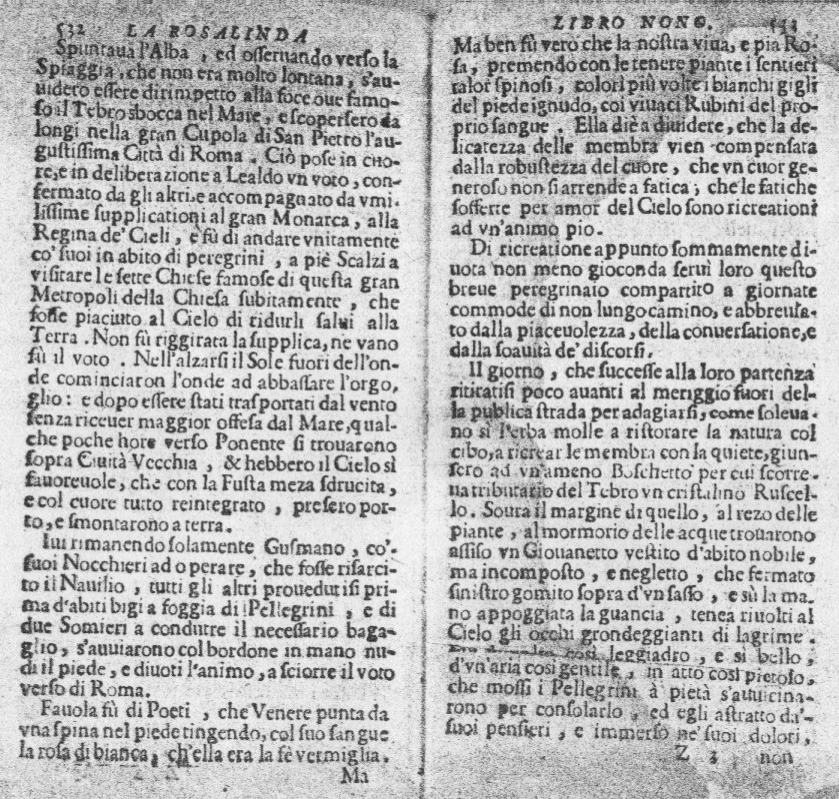 532 LA ROSALINDA
Spuntaua l'Alba, ed osseruando verso la
Spiaggia, che non era molto lontana, s'au-
uidero essere dirimpetto alla foce oue famo-
so il Tebro sbocca nel Mare, e scopersero da
longi nella gran Cupola di San Pietro l'au-
gustissima Città di Roma. Ciò pose in cuo-
re, e in deliberazione a Lealdo vn voto, con-
fermato da gli altri, e accompagnato da vmi-
lissime supplicationi al gran Monarca, alla
Regina de' Cieli, e fù di andare vnitamente
co' suoi in abito di peregrini, a piè Scalzi a
visitare le sette Chiese famose di questa gran
Metropoli della Chiesa subitamente, che
fosse piaciuto al Cielo di ridurli salui alla
Terra. Non fù riggirata la supplica, ne vano
fù il voto. Nell'alzarsi il Sole fuori dell'on-
de cominciaron l'onde ad abbassare l'orgo,
glio: e dopo essere stati trasportati dal vento
senza riceuer maggior offesa dal Mare, qual-
che poche hore verso Ponente si trouarono
sopra Ciuità Vecchia, & hebbero il Cielo sì
fauoreuole, che con la Fusta meza sdrucita,
e col cuore tutto reintegrato, presero por-
to, e smontarono a terra.
Iui rimanendo solamente Gusmano, co'
suoi Nocchieri ad operare, che fosse risarci-
to il Nauilio, tutti gli altri prouedutisi pri-
ma d'abiti bigi a foggia di Pellegrini, e di
due Somieri a condurre il necessario baga-
glio, s'auuiarono col bordone in mano nu-
di il piede, e diuoti l'animo, a sciorre il voto
verso di Roma.
Fauola fù di Poeti, che Venere punta da
vna spina nel piede tingendo, col suo sangue
la rosa di bianca, ch'ella era la fè vermiglia.
Ma
LIBRO NONO.
Ma ben fù vero che la nostra viua, e pia Ro-
sa, premendo con le tenere piante i sentieri
talor spinosi, colorì più volte i bianchi gigli
del piede ignudo, coi viuaci Rubini del pro-
prio sangue. Ella diè a diuidere, che la de-
licatezza delle membra vien compensata
dalla robustezza del cuore, che vn cuor ge-
neroso non si arrende a fatica; che le fatiche
sofferte per amor del Cielo sono ricreationi
ad vn'animo pio.
Di ricreatione appunto sommamente di-
uota non meno gioconda seruì loro questo
breue peregrinaio compartito a giornate
commode di non lungo camino, e abbreuia-
to dalla piaceuolezza, della conuersatione, e
dalla soauità de' discorsi.
Il giorno, che successe alla loro partenza
ritiratisi poco auanti al meriggio fuori del-
la publica strada per adagiarsi, come soleua-
no sì l'erba molle a ristorare la natura col
cibo, a ricrear le membra con la quiete, giun-
sero ad vn'ameno Boschetto per cui scorre-
ua tributario del Tebro vn cristalino Ruscel-
lo. Soura il margine di quello, al rezo delle
piante, al mormorio delle acque trouarono
assiso vn Giouanetto vestito d'abito nobile,
ma incomposto, e negletto, che fermato
sinistro gomito sopra d'vn sasso, e sù la ma-
no appoggiata la guancia, tenea riuolti al
Cielo gli occhi grondeggianti di lagrime.
così leggiadro, e sì bello,
d'vn'aria così gentile, in atto così pietoso,
che mossi i Pellegrini à pietà s'auuicina-
rono per consolarlo, ed egli astratto da'
suoi pensieri, e immerso ne' suoi dolori,
Z 3 non